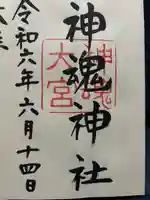 神魂神社
神魂大宮
令和六年六月十四日